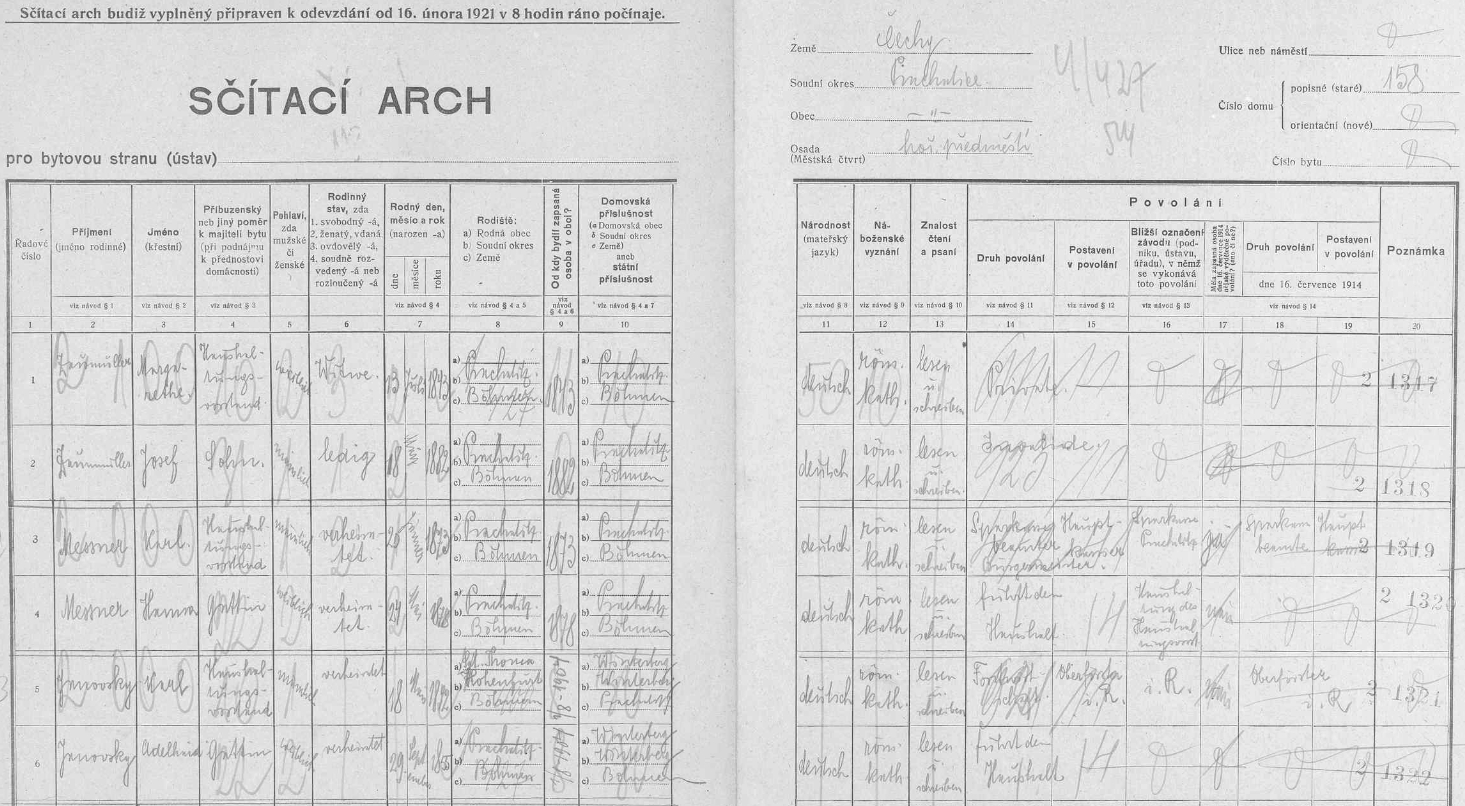 Sčítací arch budiž vyplněný připraven k odevzdání od 16. února 1921 v 8 hodin ráno počínaje.
SČÍTACÍ ARCH
pro bytovou stranu (ústav)
Země Čechy
Soudní okres Prachatice
Obec — " —
Osada hoř. předměstí
(Městská čtvrť)
4/427
Ulice neb náměstí
Číslo domu
popisné (staré) 158
orientační (nové)
Číslo bytu
Řadové číslo
Příjmení (jméno rodinné)
Jméno (křestní)
Příbuzenský neb jiný poměr k majiteli bytu (při podnájmu k přednostovi domácnosti)
Pohlaví, zda mužské či ženské
Rodinný stav, zda 1. svobodný -á, 2. ženatý, vdaná 3. ovdovělý -á, 4. soudně rozvedený -á neb rozloučený -á
Rodný den, měsíc a rok (narozen -a)
dne měsíce roku
Rodiště: a) Rodná obec b) Soudní okres c) Země
Od kdy bydlí zapsaná osoba v obci?
Domovská příslušnost (a Domovská obec b Soudní okres c Země) aneb státní příslušnost
Národnost (mateřský jazyk)
Náboženské vyznání
Znalost čtení a psaní
Povolání
Druh povolání
Postavení v povolání
Bližší označení závodu (podniku, ústavu, úřadu), v němž se vykonává toto povolání
Druh povolání
Postavení v povolání
dne 16. července 1914
Poznámka
viz návod § 1
viz návod § 2
viz návod § 3
viz návod § 4
viz návod § 4 a 5
viz návod § 4 a 6
viz návod § 4 a 7
viz návod § 8
viz návod § 9
viz návod § 10
viz návod § 11
viz návod § 12
viz návod § 13
viz návod § 14
1 2 3 4 5 6 7 8 9 10 11 12 13 14 15 16 17 18 19 20
1 Margarethe Haushaltungsvorstand weiblich Witwe 13 Juli 1843
a) Prachatitz
b) "
c) Böhmen
1843
a) Prachatitz
b) "
c) Böhmen
deutsch röm. kath. lesen u. schreiben Private 2 1317
2 Josef Sohn männlich ledig 18 1882
a) Prachatitz
b) "
c) Böhmen
1882
a) Prachatitz
b) "
c) Böhmen
deutsch röm. kath. lesen u. schreiben 2 1318
3 Messner Karl Haushaltungsvorstand männlich verheiratet 26 Jänner 1873
a) Prachatitz
b) "
c) Böhmen
1873
a) Prachatitz
b) "
c) Böhmen
deutsch röm. kath. lesen u. schreiben Sparkassebeamter Bürgermeister Hauptkassier Sparkasse Prachatitz ja Sparkassebeamte 2 1319
4 Messner Hanna Gattin weiblich verheiratet 24 Mai 1878
a) Prachatitz
b) "
c) Böhmen
1878
a) Prachatitz
b) "
c) Böhmen
deutsch röm. kath. lesen u. schreiben führt den Haushalt Haushaltung des Haushaltungsvorst. nein 2 1320
5 Janovsky Karl Haushaltungsvorstand männlich verheiratet 18
a) St. Thoma
b) Hohenfurt
c) Böhmen
a) Winterberg
b) Winterberg
c) Prachatitz
deutsch röm. kath. lesen u. schreiben Oberförster i. R. i. R. nein Oberförster i. R. 2 1321
6 Janovsky Adelheid Gattin weiblich verheiratet 29 September 1855
a) Prachatitz
b) "
c) Böhmen
a) Winterberg
b) Winterberg
c) Böhmen
deutsch röm. kath. lesen u. schreiben führt den Haushalt 2 1322